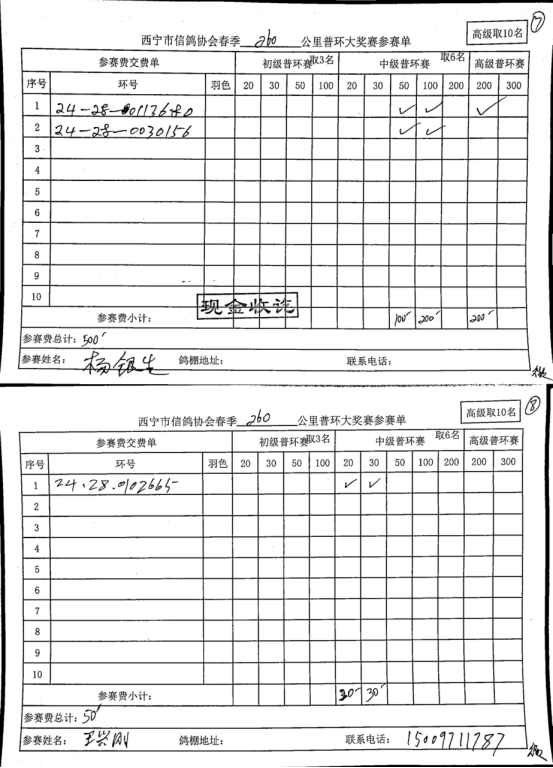 ⑦
高级取10名
西宁市信鸽协会春季 260 公里普环大奖赛参赛单
参赛费交费单 初级普环赛取3名 中级普环赛 取6名 高级普环赛
序号 环号 羽色 20 30 50 100 20 30 50 100 200 200 300
1 ✓ ✓ ✓
2 24-28-0030156 ✓ ✓
3
4
5
6
7
8
9
10
现金收讫
参赛费小计: 100 200 200
参赛费总计: 500
参赛姓名: 杨银生 鸽棚地址: 联系电话:
⑧
高级取10名
西宁市信鸽协会春季 260 公里普环大奖赛参赛单
参赛费交费单 初级普环赛取3名 中级普环赛 取6名 高级普环赛
序号 环号 羽色 20 30 50 100 20 30 50 100 200 200 300
1 24.28.0102665 ✓ ✓
2
3
4
5
6
7
8
9
10
参赛费小计: 20 30
参赛费总计: 50
参赛姓名: 王兴刚 鸽棚地址: 联系电话: 15009711787